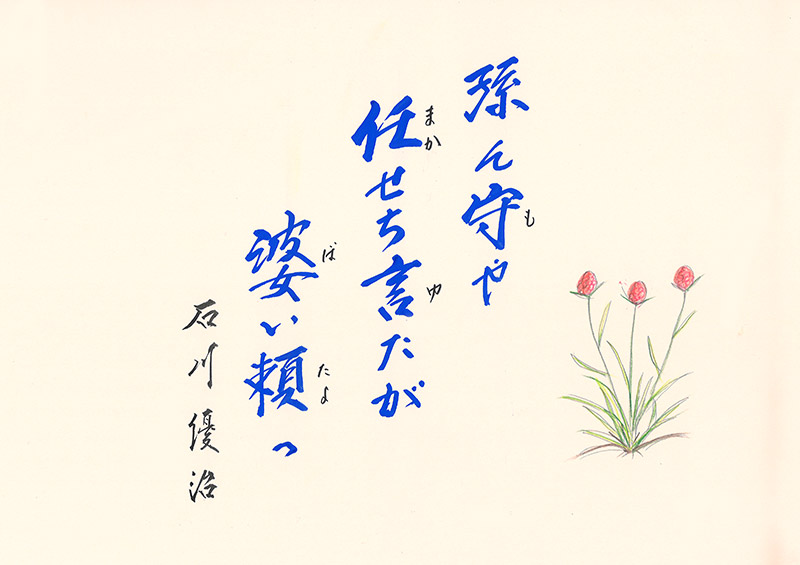 孫ん守や
任せち言たが
婆い頼っ
石川優治
も
まか
ゆ
ぼ
たよ